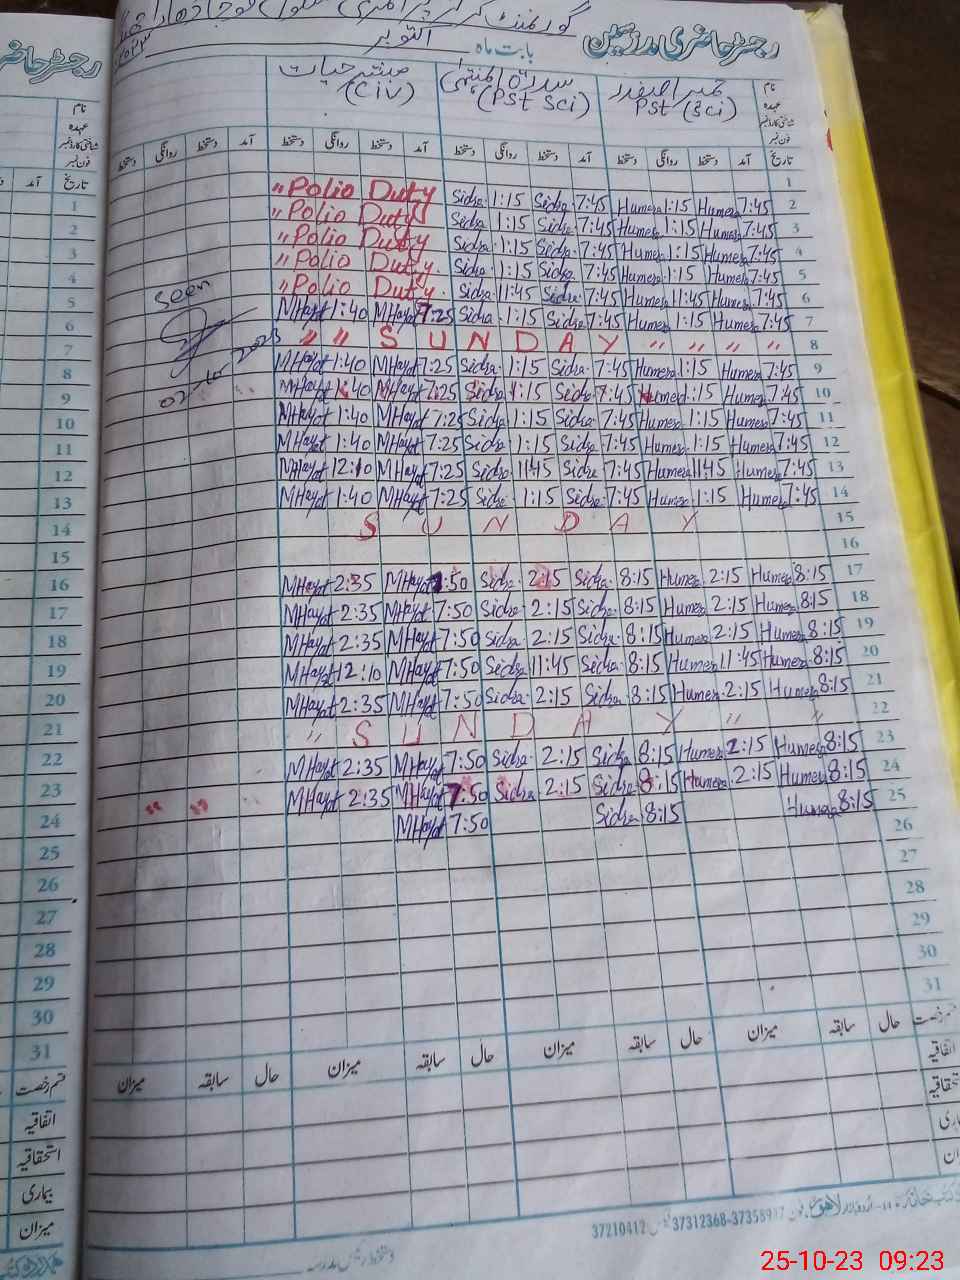 رجسٹر حاضری مدرسین
بابت ماہ اکتوبر
گورنمنٹ گرلز پرائمری سکول
نام
عہدہ
شناختی کارڈ نمبر
فون نمبر
PST (Sci)
سدرۃ المنتہیٰ
(PST Sci)
حیات
(Civ)
تاریخ آمد دستخط روانگی دستخط آمد دستخط روانگی دستخط آمد دستخط روانگی دستخط آمد دستخط روانگی دستخط
1
" Polio Duty Sidra 1:15 Sidra 7:45 Humera 1:15 Humera 7:45 2
" Polio Duty Sidra 1:15 Sidra 7:45 Humera 1:15 Humera 7:45 3
" Polio Duty Sidra 1:15 Sidra 7:45 Humera 1:15 Humera 7:45 4
" Polio Duty. Sidra 1:15 Sidra 7:45 Humera 1:15 Humera 7:45 5
" Polio Duty. Sidra 11:45 Sidra 7:45 Humera 11:45 Humera 7:45 6
MHayat 1:40 MHayat 7:25 Sidra 1:15 Sidra 7:45 Humera 1:15 Humera 7:45 7
" " S U N D A Y " " " " 8
MHayat 1:40 MHayat 7:25 Sidra 1:15 Sidra 7:45 Humera 1:15 Humera 7:45 9
MHayat 1:40 MHayat 7:25 Sidra 1:15 Sidra 7:45 Humera 1:15 Humera 7:45 10
MHayat 1:40 MHayat 7:25 Sidra 1:15 Sidra 7:45 Humera 1:15 Humera 7:45 11
MHayat 1:40 MHayat 7:25 Sidra 1:15 Sidra 7:45 Humera 1:15 Humera 7:45 12
MHayat 12:10 MHayat 7:25 Sidra 11:45 Sidra 7:45 Humera 11:45 Humera 7:45 13
MHayat 1:40 MHayat 7:25 Sidra 1:15 Sidra 7:45 Humera 1:15 Humera 7:45 14
S U N D A Y 15
16
MHayat 2:35 MHayat 7:50 Sidra 2:15 Sidra 8:15 Humera 2:15 Humera 8:15 17
MHayat 2:35 MHayat 7:50 Sidra 2:15 Sidra 8:15 Humera 2:15 Humera 8:15 18
MHayat 2:35 MHayat 7:50 Sidra 2:15 Sidra 8:15 Humera 2:15 Humera 8:15 19
MHayat 12:10 MHayat 7:50 Sidra 11:45 Sidra 8:15 Humera 11:45 Humera 8:15 20
MHayat 2:35 MHayat 7:50 Sidra 2:15 Sidra 8:15 Humera 2:15 Humera 8:15 21
" S U N D A Y " " 22
MHayat 2:35 MHayat 7:50 Sidra 2:15 Sidra 8:15 Humera 2:15 Humera 8:15 23
MHayat 2:35 MHayat 7:50 Sidra 2:15 Sidra 8:15 Humera 2:15 Humera 8:15 24
MHayat 7:50 Sidra 8:15 Humera 8:15 25
26
27
28
29
30
31
Seen
02-10-2023
قسم رخصت حال سابقہ میزان حال سابقہ میزان حال سابقہ میزان حال سابقہ میزان
اتفاقیہ
استحقاقیہ
لاہور
37210412 37312368-37358917
دستخط رئیس مدرسہ
رجسٹر حاضری
نام
عہدہ
شناختی کارڈ نمبر
فون نمبر
تاریخ
آمد
1
2
3
4
5
6
7
8
9
10
11
12
13
14
15
16
17
18
19
20
21
22
23
24
25
26
27
28
29
30
31
قسم رخصت
اتفاقیہ
استحقاقیہ
بیماری
میزان
25-10-23 09:23